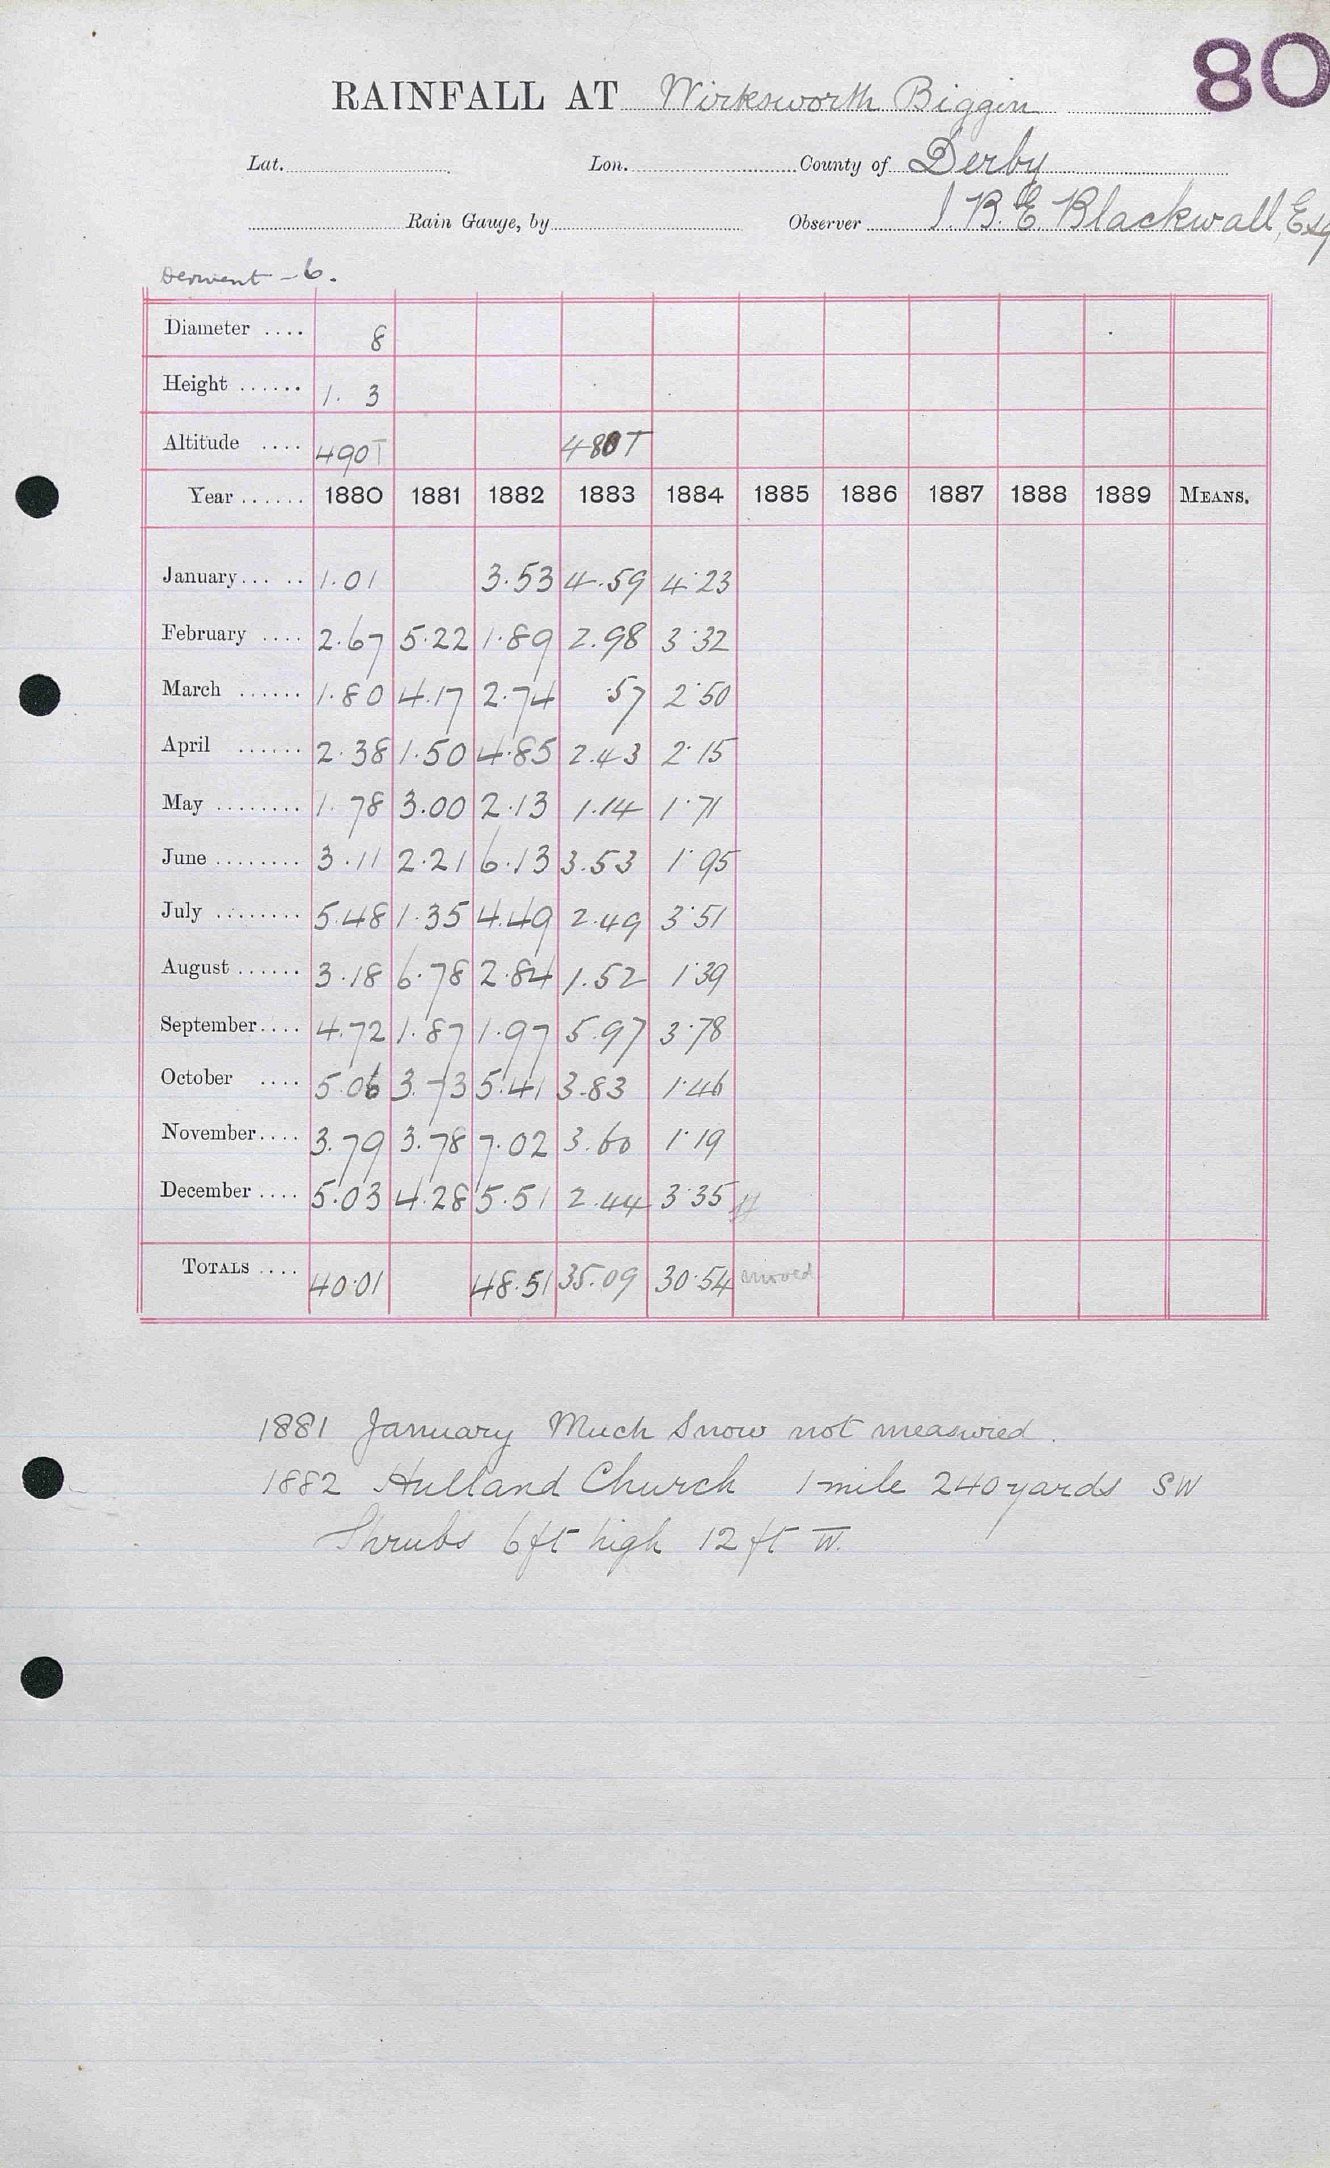 80
RAINFALL AT Wirksworth Biggin
Lat. Lon. County of Derby
Rain Gauge, by Observer J. B. E. Blackwall, Esq
Derwent - 6.
Diameter .... 8
Height ...... 1. 3
Altitude .... 490T 480T
Year ...... 1880 1881 1882 1883 1884 1885 1886 1887 1888 1889 MEANS.
January ... .. 1.01 3.53 4.59 4.23
February .... 2.67 5.22 1.89 2.98 3.32
March ...... 1.80 4.17 2.74 .57 2.50
April ...... 2.38 1.50 4.85 2.43 2.15
May ........ 1.78 3.00 2.13 1.14 1.71
June ........ 3.11 2.21 6.13 3.53 1.95
July ........ 5.48 1.35 4.49 2.49 3.51
August ...... 3.18 6.78 2.84 1.52 1.39
September .... 4.72 1.87 1.97 5.97 3.78
October .... 5.06 3.73 5.41 3.83 1.46
November .... 3.79 3.78 7.02 3.60 1.19
December .... 5.03 4.28 5.51 2.44 3.35
TOTALS .... 40.01 48.51 35.09 30.54 moved
1881 January Much Snow not measured.
1882 Hulland Church 1 mile 240 yards SW
Shrubs 6ft high 12 ft W.